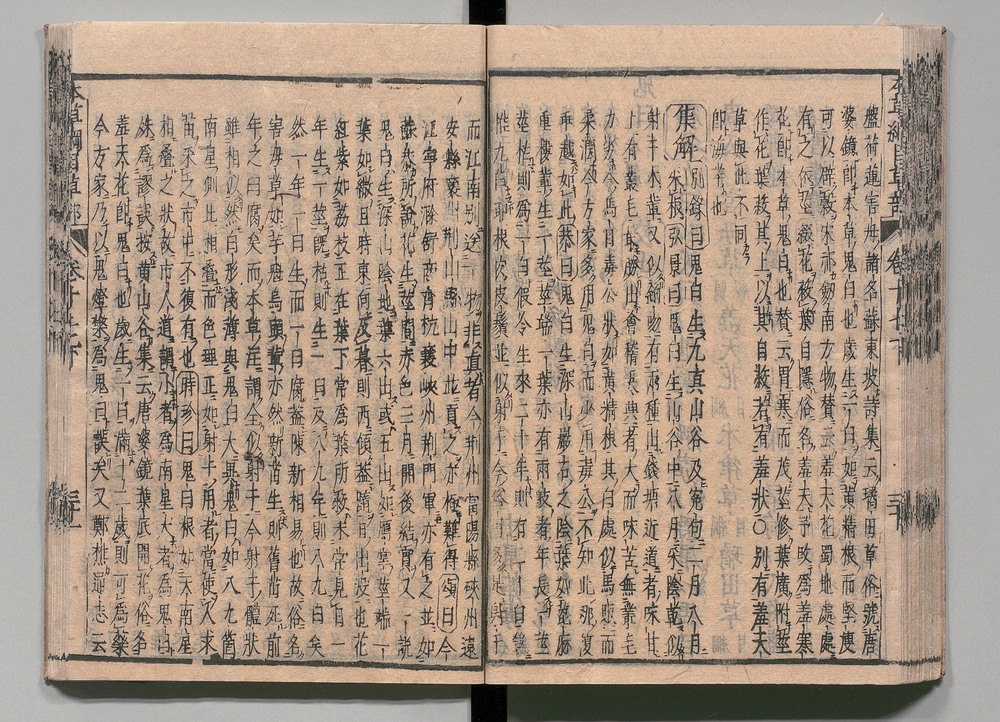 盤荷蓮害母諸名蘇東坡詩集云璚田草俗號唐
婆鏡即本草鬼白也歲生一白如黃精根而堅瘦
可以辟穀宋祁劒南方物贊云羞天花蜀地處處
有之依莖綴花蔽葉自隱俗名羞天予改為羞寒
花即本草鬼白也贊云冒寒而茂莖修葉廣附莖
作花葉蔽其上以其自蔽若有羞狀○別有羞天
草與此不同
即海芋也
集解 別錄曰鬼白生九真山谷及寃句二月八月
采根弘景曰鬼白生山谷中八月采陰乾似
射干术輩又似鉤吻有兩種出錢塘近道者味甘
上有叢毛最勝出會稽吳興者大而味苦無叢毛
力劣今馬目毒公狀如黃精根其白處似馬眼而
柔潤今方家多用鬼白而少用毒公不知此那復
乖越如此恭曰鬼白生深山巖石之陰葉如蓖麻
重樓輩生一莖莖端一葉亦有兩岐者年長一莖
莖枯則為一白假令生來二十年則有二十白
而江南別送一物非真者今荊州當陽縣硤州遠
安縣襄州荊山縣山中並貢之亦極難得頌曰今
江寧府滁舒商齊杭襄峽州荊門軍亦有之並如
蘇恭所說花生莖間赤色三月開後結實又一說
鬼白生深山陰地葉六出或五出如鴈掌莖端一
葉如繖旦時東向及暮則西傾蓋隨日出沒也花
紅紫如荔枝正在葉下常為葉所蔽未常見日一
年生一莖既枯則生一白及八九年則八九白矣
然一年一白生而一白腐蓋陳新相易也故俗名
害母草如芋魁烏頭輩亦然新苗生則舊苗死前
年之白腐矣而本草注謂全似射干今射干體狀
雖相似然白形淺薄與鬼白大異鬼白如八九箇
南星側比相疊而色理正如射干用者當使人求
苗之市中不復有也時珍曰鬼白根如天南星
相疊之狀故市人通謂小者為南星大者為鬼白
殊為謬誤按黃山谷集云唐婆鏡葉底開花俗名
羞天花即鬼白也歲生一白滿十二歲則可為藥
今方家乃以鬼燈檠為鬼白誤矣又鄭樵通志云